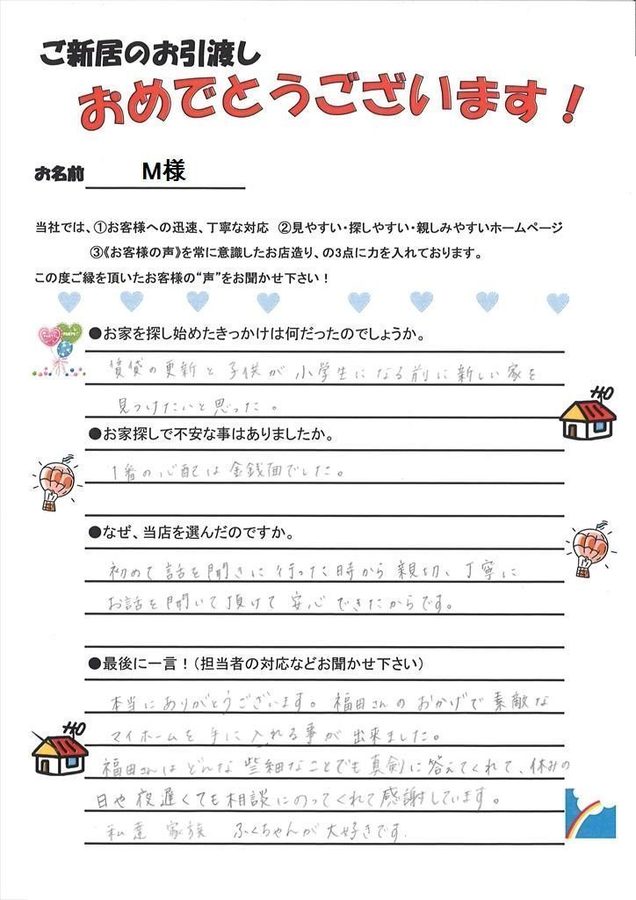 ご新居のお引渡し
おめでとうございます！
お名前 M様
当社では、①お客様への迅速、丁寧な対応 ②見やすい・探しやすい・親しみやすいホームページ
③《お客様の声》を常に意識したお店造り、の3点に力を入れております。
この度ご縁を頂いたお客様の“声”をお聞かせ下さい！
●お家を探し始めたきっかけは何だったのでしょうか。
賃貸の更新と子供が小学生になる前に新しい家を
見つけたいと思った。
●お家探しで不安な事はありましたか。
1番の心配は金銭面でした。
●なぜ、当店を選んだのですか。
初めて話を聞きに行った時から親切、丁寧に
お話を聞いて頂けて安心できたからです。
●最後に一言！（担当者の対応などお聞かせ下さい）
本当にありがとうございます。福田さんのおかげで素敵な
マイホームを手に入れる事が出来ました。
福田さんはどんな些細なことでも真剣に答えてくれて、休みの
日や夜遅くても相談にのってくれて感謝しています。
私達家族 ふくちゃんが大好きです